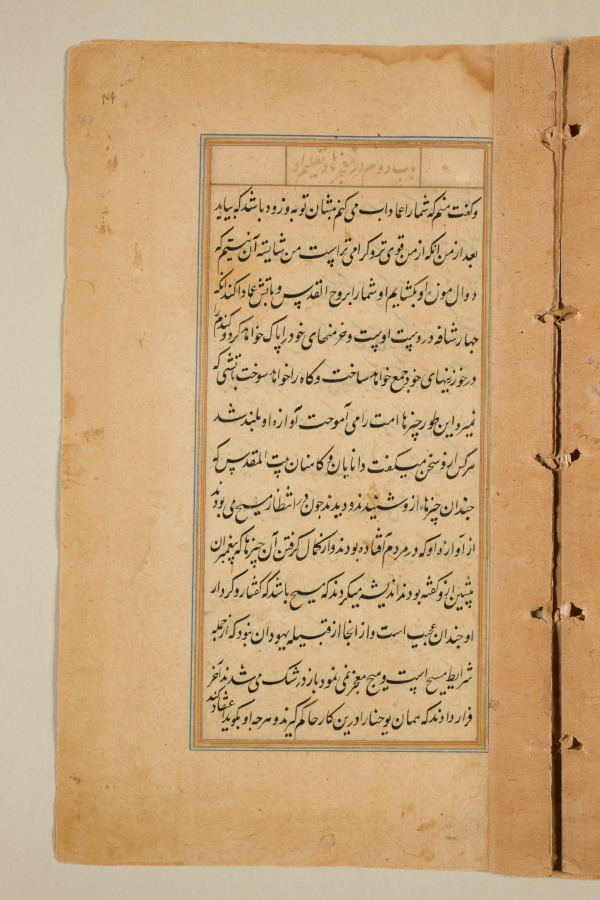 باب دوم در معجزها و تعلیم او
و گفت منم که شما را عماد اب می کنم مبشان توبه و زود باشد که بیاید
بعد از من آنکه از من قوی تر و گرامی تر است من شایسته آن نیستم که
دوال موزه او بکشایم او شما را بروح القدس و باتش عماد کند آنکه
چهار شاخه در دست اوست و خرمنهای خود را پاک خواهد کرد و گندم را
در خوزینهای خود جمع خواهد ساخت و کاه را خواهد سوخت باتشی که
نمیرد این طور چیزها امت را می آموخت آوازه او بلند شد
هر کس ازو سخن میگفت دانایان و کاهنان بیت المقدس که
چندان چیزها ازو شنیدند و دیدند چون در انتظار مسیح می بودند
از آوازه او که در مردم افتاده بودند و از کمال گرفتن آن چیزها که پیغمبران
پیشین ازو گفته بودند اندیشه میکردند که مسیح باشد که گفتار و کردار
او چندان عجیب است و از انجا از قبیله یهودان نبود که از جمله
شرایط مسیح است و هیچ معجز نمی نمود باز در شک می شدند آخر
قرار دادند که همان یوحنا را درین کار حاکم گیرند و هرچه او بگوید اعتقاد کنند